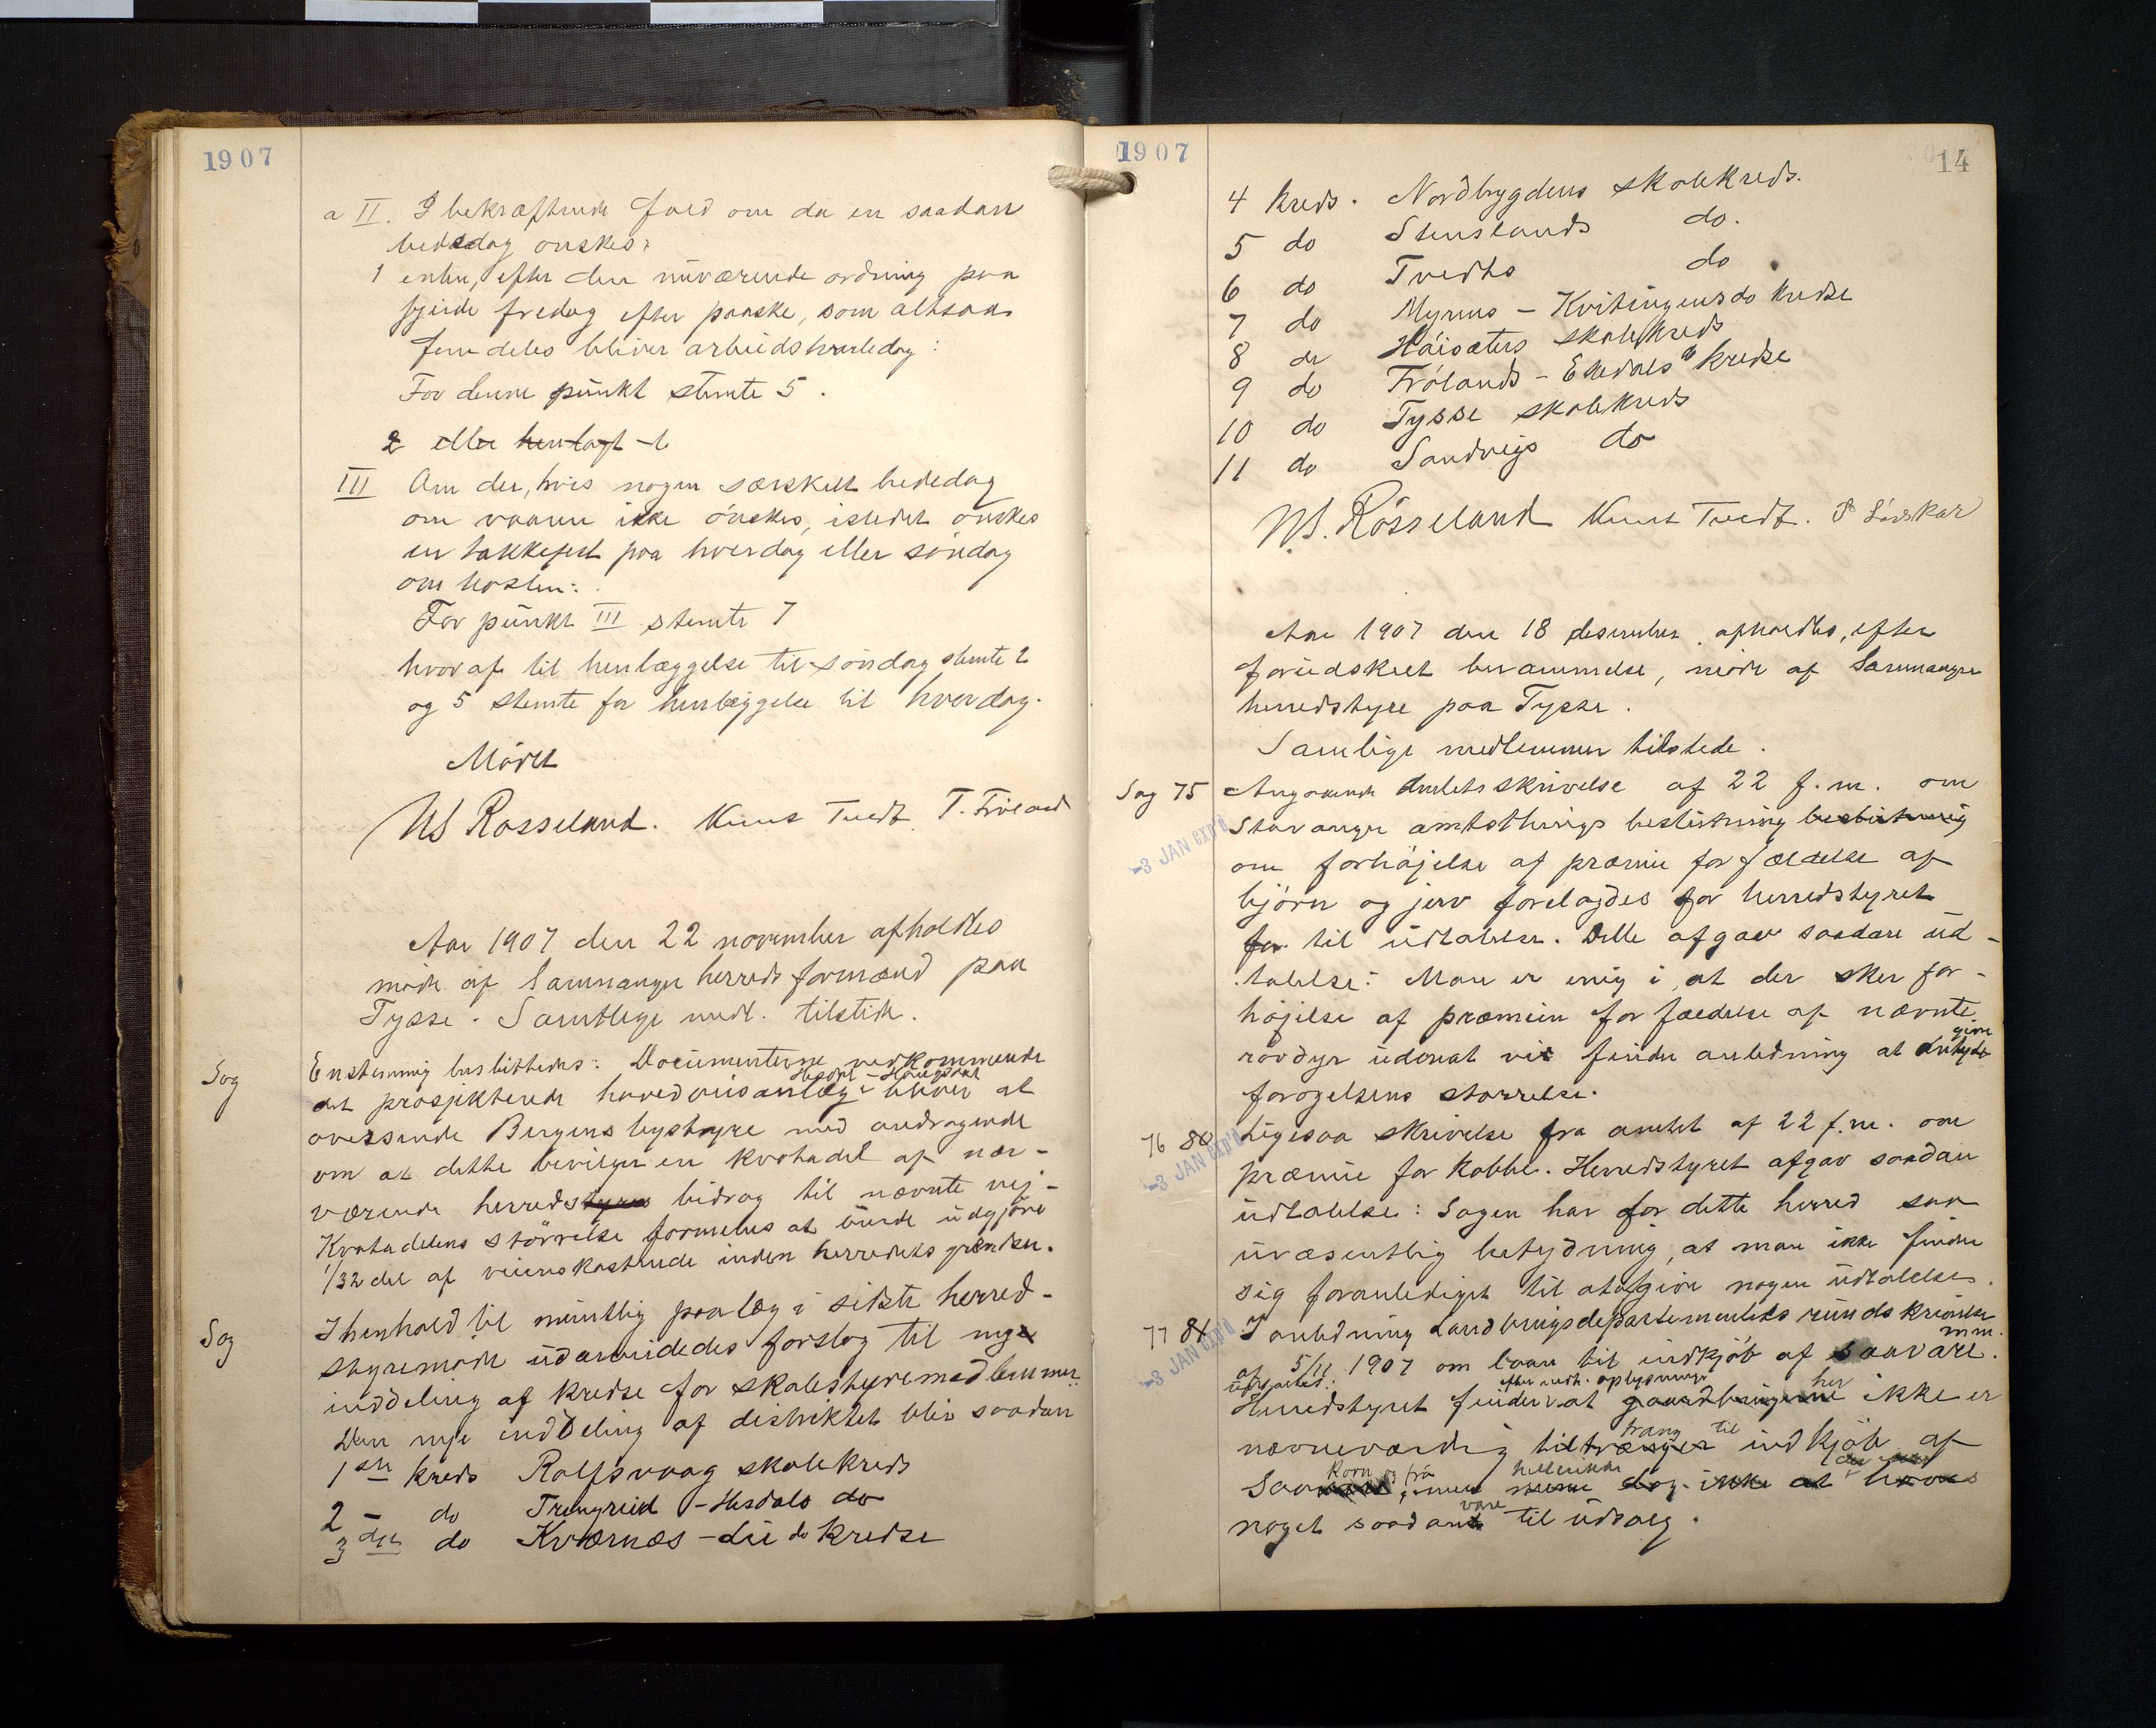 1907
a II. I bekræftende fald om da en saadan
bededag ønskes:
1 enten, efter den nuværende ordning paa
fjerde fredag efter paaske, som altsaa
fremdeles bliver arbeidshviledag:
For denne punkt stemte 5.
2 eller henlagt t
III Om der, hvis nogen særskilt bededag
om vaaren ikke ønskes, istedet ønskes
en takkefest paa hverdag eller søndag
om høsten:
For punkt III stemte 7
hvoraf til henlæggelse til søndag stemte 2
og 5 stemte for henlæggelse til hverdag.
Mødet
NS Rosseland. Knut Tvedt. T. Frøland
Aar 1907 den 22 november afholdtes
møde af Samnanger herreds formænd paa
Tysse. Samtlige medl. tilstede.
Sag Enstemmig besluttedes: Documenterne vedkommende
det prosjekterende hovedveisanlæg Hisdal - Haugsdal bliver at
oversende Bergens bystyre med andragende
om at dette bevilger en kvotadel af nær-
værende herredstyres bidrag til nævnte vej-
Kvotadelens størrelse formenes at burde udgjøre
1/32 del af veienskostende inden herredets grændser.
Sag I henhold til mundtlig paalæg i sidste herred-
styremøde udarbeidedes forslag til nye
inddeling af kredse for skolestyremedlemmer
Den nye inddeling af distriktet blir saadan
1ste kreds Rolfsvaag skolekreds
2 - do Trengereid - Hisdals do
3die do Kværnæs - Lii do kredse
1907
14
4 kreds. Nordbygdens skolekreds.
5 do Stenslands do.
6 do Tvedts do
7 do Myrens - Kvitingens do kredse
8 do Høisæters skolekreds
9 do Frølands - Ekedals do kredse
10 do Tysse skolekreds
11 do Sandvigs do
NS. Rösseland Knut Tvedt. P Lønskar
Aar 1907 den 18 desember afholdtes, efter
forudskeet berammelse, møde af Samnanger
herredstyre paa Tysse.
Samtlige medlemmer tilstede.
Sag 75 Angaaende Amtets skrivelse af 22 f.m. om
Stavanger amtsthings beslutning beslutning
-3 JAN
om forhøjelse af præmie for fældelse af
bjørn og jerv forelagdes for herredstyret
for til udtalelse. Dette afgav saadan ud-
talelse: Man er enig i, at der sker for-
højelse af præmien for fældelse af nævnte
rovdyr uden at vi finder anledning at antyde give
forøgelsens størrelse.
76 80 Ligesaa skrivelse fra amtet af 22 f.m. om
-3 JAN
præmie for kobbe. Herredstyret afgav saadan
udtalelse: Sagen har for dette herred saa
uvæsentlig betydning, at man ikke finder
sig foranlediget til at afgive nogen udtalelse.
77 81 I anledning Landbrugsdepartementets rundskrivelse
-3 JAN
af 5/11 1907 om laan til indkjøb af saavare m.m.
Herredstyret finder efter indh. oplysninger at gaardbrugerne her ikke er
nævneværdig tiltrænger trang til indkjøb af
Saa korn og frø, men mener heller ikke dog ikke at haves
noget saadant vare til udsalg.